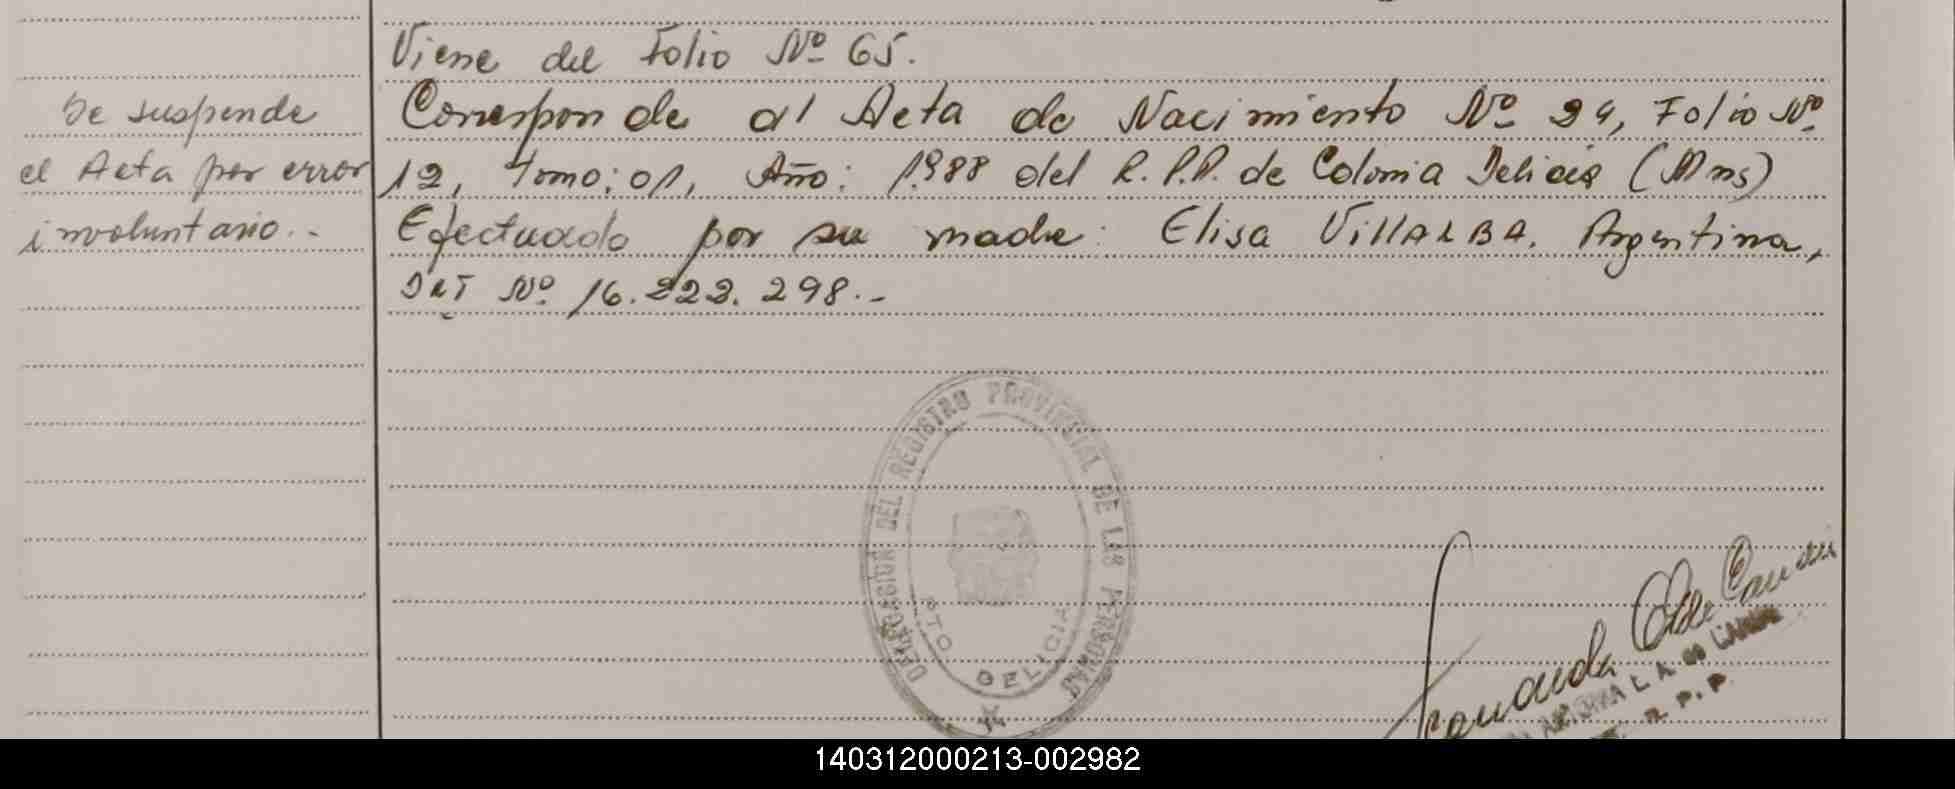 Viene del Folio Nº 65.
Se suspende
el Acta por error
involuntario.-
Corresponde al Acta de Nacimiento Nº 24, Folio Nº
12, Tomo: 01, Año: 1988 del R.P.P. de Colonia Delicia (Mns)
Efectuado por su madre: Elisa VillALBA, Argentina,
Nº 16.222.298.-
DELEGACION DEL REGISTRO PROVINCIAL DE LAS PERSONAS
PTO DELICIA
R. P. P.
140312000213-002982